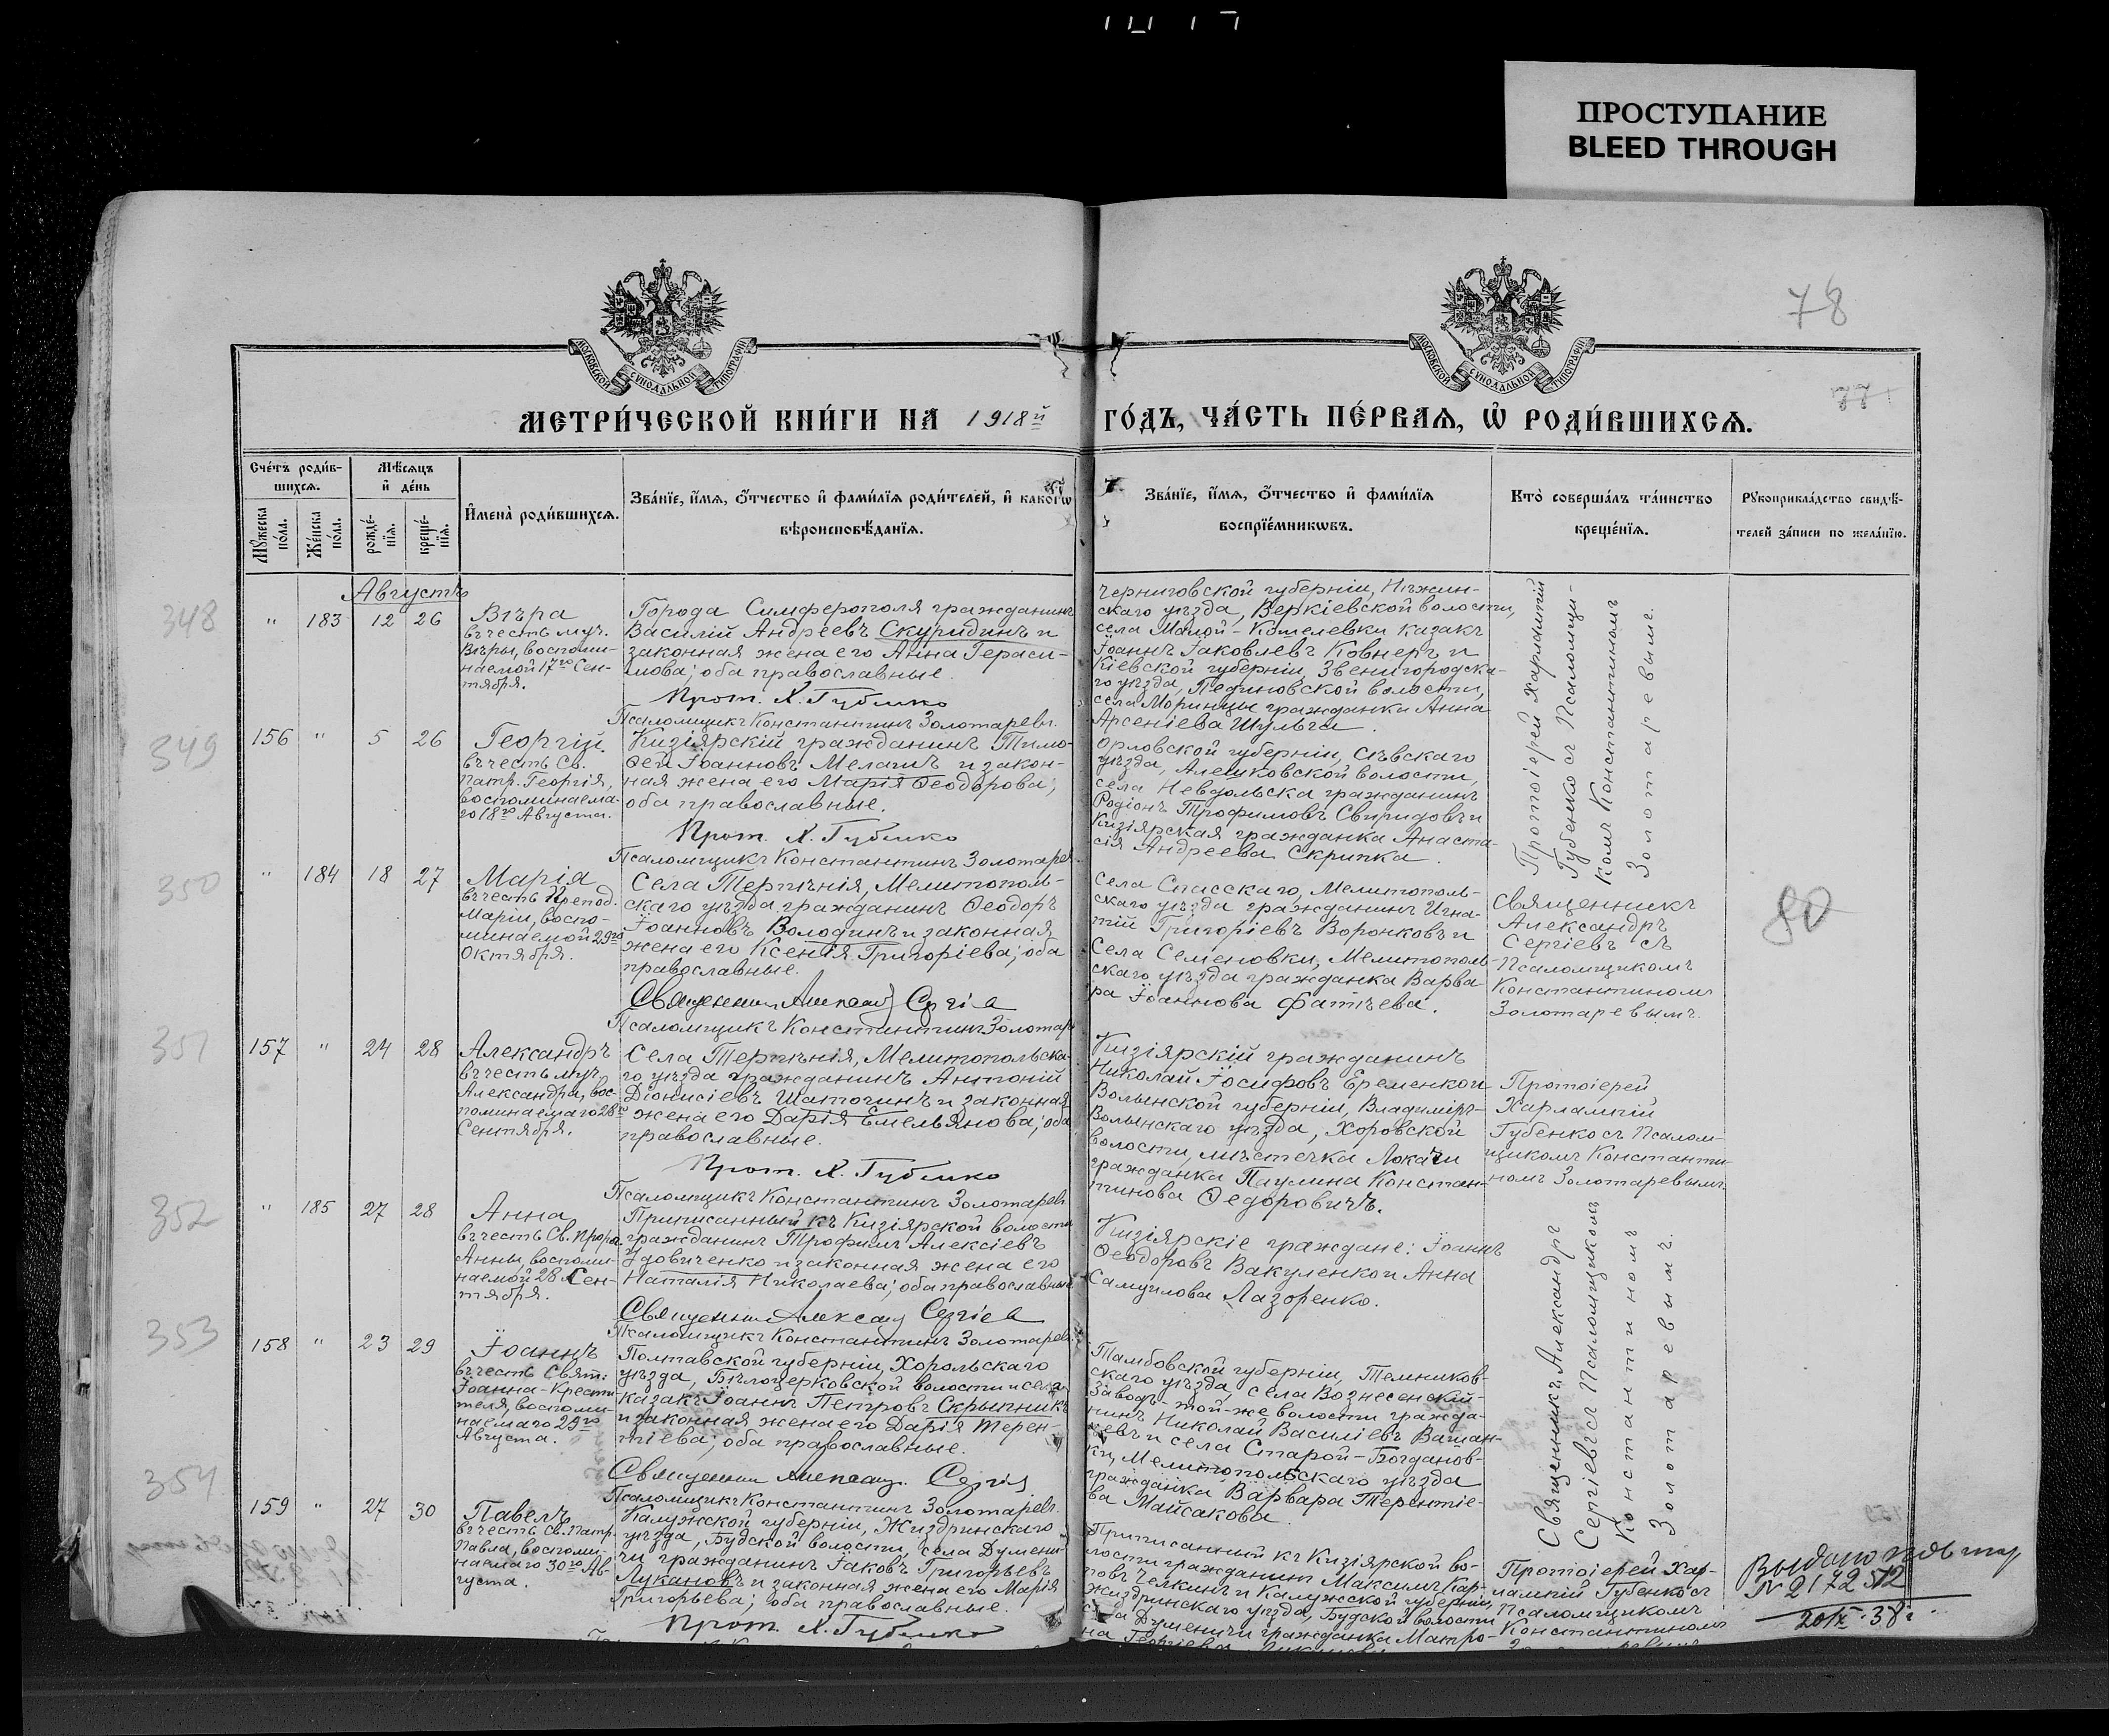 ПРОСТУПАНИЕ
BLEED THROUGH
78
МОСКОВСКОЙ СУНОДАЛЬНОЙ ТИПОГРАФІИ
МОСКОВСКОЙ СУНОДАЛЬНОЙ ТИПОГРАФІИ
77
МЕТРИ́ЧЕСКОЙ КНИ́ГИ НА 1918й ГО́ДЪ, ЧА́СТЬ ПЕ́РВАѦ, Ѿ РОДИ́ВШИХСѦ.
Сче́тъ роди́в-
шихсѧ.
Му́жеска по́ла.
Же́нска по́ла.
Мѣ́сѧцъ
и де́нь
рожде́-
нїѧ.
креще́-
нїѧ.
И́мена̀ роди́вшихсѧ.
Зва́нїе, и́мѧ, о́тчество и фами́лїѧ роди́телей, и како́гѡ
вѣроисповѣ́данїѧ.
Зва́нїе, и́мѧ, о́тчество и фами́лїѧ
воспрїе́мникѡвъ.
Кто̀ соверша́лъ та́инство
креще́нїѧ.
Рꙋкоприкла́дство свидѣ́-
телей за́писи по жела́нїю.
Августъ
348
" 183 12 26
Вѣра
въ честь муч.
Вѣры, воспоми-
наемой 17го Сен-
тября.
Города Симферополя гражданинъ
Василій Андреевъ Скуридинъ и
законная жена его Анна Гераси-
мова; оба православные.
Прот. Х. Губенко
Псаломщикъ Константинъ Золотаревъ.
Черниговской губерніи, Нѣжин-
скаго уѣзда, Веркіевской волости,
села Малой-Кошелевки казакъ
Іоаннъ Іаковлевъ Ковнеръ и
Кіевской губерніи, Звенигородска-
го уѣзда, Пединовской волости,
села Моринцы гражданка Анна
Арсеніева Шульга.
Протоіерей Харлампій
Губенко съ Псаломщи-
комъ Константиномъ
Золотаревымъ.
349
156 " 5 26
Георгій.
въ честь Св.
патр. Георгія,
воспоминаема-
го 18го Августа.
Кизіярскій гражданинъ Тимо-
ѳей Іоанновъ Мелагинъ и закон-
ная жена его Марія Ѳеодорова;
оба православные.
Прот. Х. Губенко
Псаломщикъ Константинъ Золотарев
Орловской губерніи, Сѣвскаго
уѣзда, Алешковской волости,
села Невдольска гражданинъ
Родіонъ Трофимовъ Свиридовъ и
Кизіярская гражданка Анаста-
сія Андреева Скрипка.
350
" 184 18 27
Марія
въ честь Препод.
Маріи, воспо-
минаемой 29го
Октября.
Села Терпѣнія, Мелитополь-
скаго уѣзда гражданинъ Ѳеодоръ
Іоанновъ Володинъ и законная
жена его Ксенія Григоріева; оба
православные.
Священникъ Александръ Сергіев
Псаломщикъ Константинъ Золотар
Села Спасскаго, Мелитополь-
скаго уѣзда гражданинъ Игна-
тій Григоріевъ Воронковъ и
Села Семеновки, Мелитополь-
скаго уѣзда гражданка Варва-
ра Іоаннова Фатѣева.
Священникъ
Александръ
Сергіевъ съ
Псаломщикомъ
Константиномъ
Золотаревымъ.
80
351
157 " 24 28
Александръ
въ честь муч.
Александра, вос-
поминаемаго 28го
Сентября.
Села Терпѣнія, Мелитопольска-
го уѣзда гражданинъ Антоній
Діонисіевъ Шатогинъ и законная
жена его Дарія Емельянова; оба
православные.
Прот. Х. Губенко
Псаломщикъ Константинъ Золотаревъ.
Кизіярскій гражданинъ
Николай Іосифовъ Еременко и
Волынской губерніи, Владиміръ-
Волынскаго уѣзда, Хоровской
волости, мѣстечка Локачи
гражданка Паулина Констан-
тинова Ѳедоровичъ.
Протоіерей
Харлампій
Губенко съ Псалом-
щикомъ Константи-
номъ Золотаревымъ.
352
" 185 27 28
Анна
въ честь Св. Прор.
Анны, воспоми-
наемой 28 Сен-
тября.
Приписанный къ Кизіярской волости
гражданинъ Трофимъ Алексіевъ
Удовиченко и законная жена его
Наталія Николаева; оба православные
Священник Александ Сергіев
Псаломщикъ Константинъ Золотаревъ.
Кизіярскіе граждане: Іоаннъ
Ѳеодоровъ Вакуленко и Анна
Самуилова Лазоренко.
Священникъ Александръ
Сергіевъ съ Псаломщикомъ
Константиномъ
Золотаревымъ.
353
158 " 23 29
Іоаннъ
въ честь Свят.
Іоанна-Крести-
теля, воспоми-
наемаго 29го
Августа.
Полтавской губерніи, Хорольскаго
уѣзда, Бѣлоцерковской волости и села
казакъ Іоаннъ Петровъ Скрыпникъ
и законная жена его Дарія Терен-
тіева; оба православные.
Священник Александ. Сергіев
Псаломщикъ Константинъ Золотаревъ.
Тамбовской губерніи, Темников-
скаго уѣзда, села Вознесенскій-
Заводъ-той-же волости гражда-
нинъ Николай Василіевъ Ваган-
цевъ и села Старой-Богданов-
ки, Мелитопольскаго уѣзда
гражданка Варвара Терентіе-
ва Майсакова.
354
159 " 27 30
Павелъ
въ честь Св. Патр.
Павла, воспоми-
наемаго 30го Ав-
густа.
Калужской губерніи, Жиздринскаго
уѣзда, Будской волости, села Думени-
чи гражданинъ Іаковъ Григорьевъ
Лукановъ и законная жена его Марія
Григорьева; оба православные.
Прот. Х. Губенко
Приписанный къ Кизіярской во-
лости гражданин Максимъ Кар-
повъ Челкинъ и Калужской губерніи,
Жиздринскаго уѣзда, Будской волости
села Думеничи гражданка Матро-
на Георгіева
Протоіерей Хар-
лампій Губенко съ
Псаломщикомъ
Константиномъ
Выдано повтор
№ 2172512
20/IX-38г.